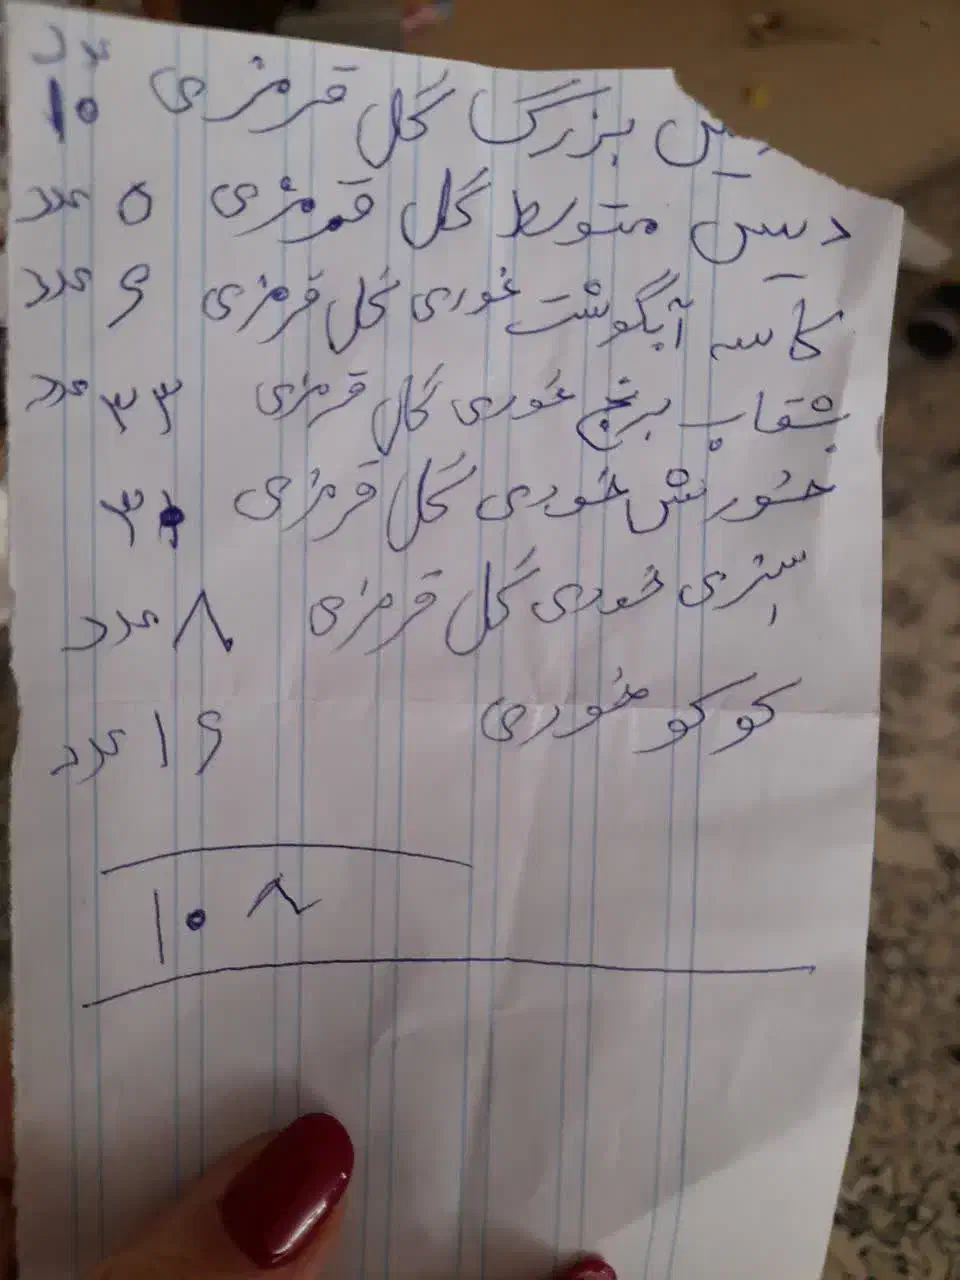 دیس بزرگ گل قرمزی ۱۰ عدد
دیس متوسط گل قرمزی ۵ عدد
کاسه آبگوشت خوری گل قرمزی ۶ عدد
بشقاب برنج خوری گل قرمزی ۳۳ عدد
خورش خوری گل قرمزی ۳۰
سبزی خوری گل قرمزی ۸ عدد
کوکو خوری ۱۶ عدد
۱۰۸